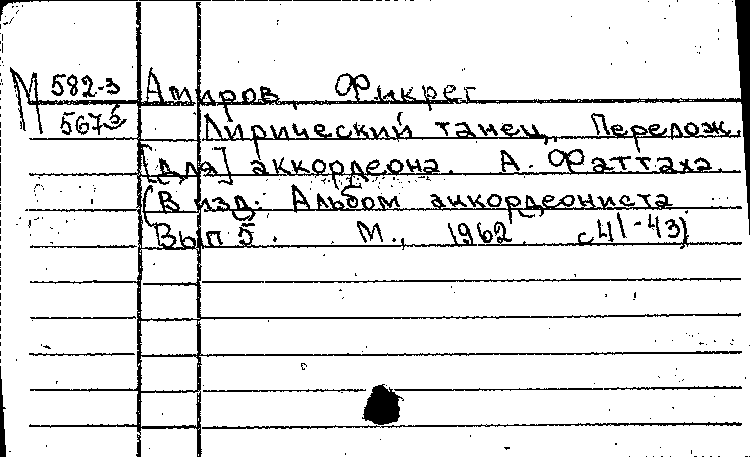 М 582-3 Амиров, Фикрет
567 Лирический танец, Перелож.
[для] аккордеона. А. Фаттаха.
(В изд. Альбом аккордеониста
Вып 5. М., 1962 с 41-43)